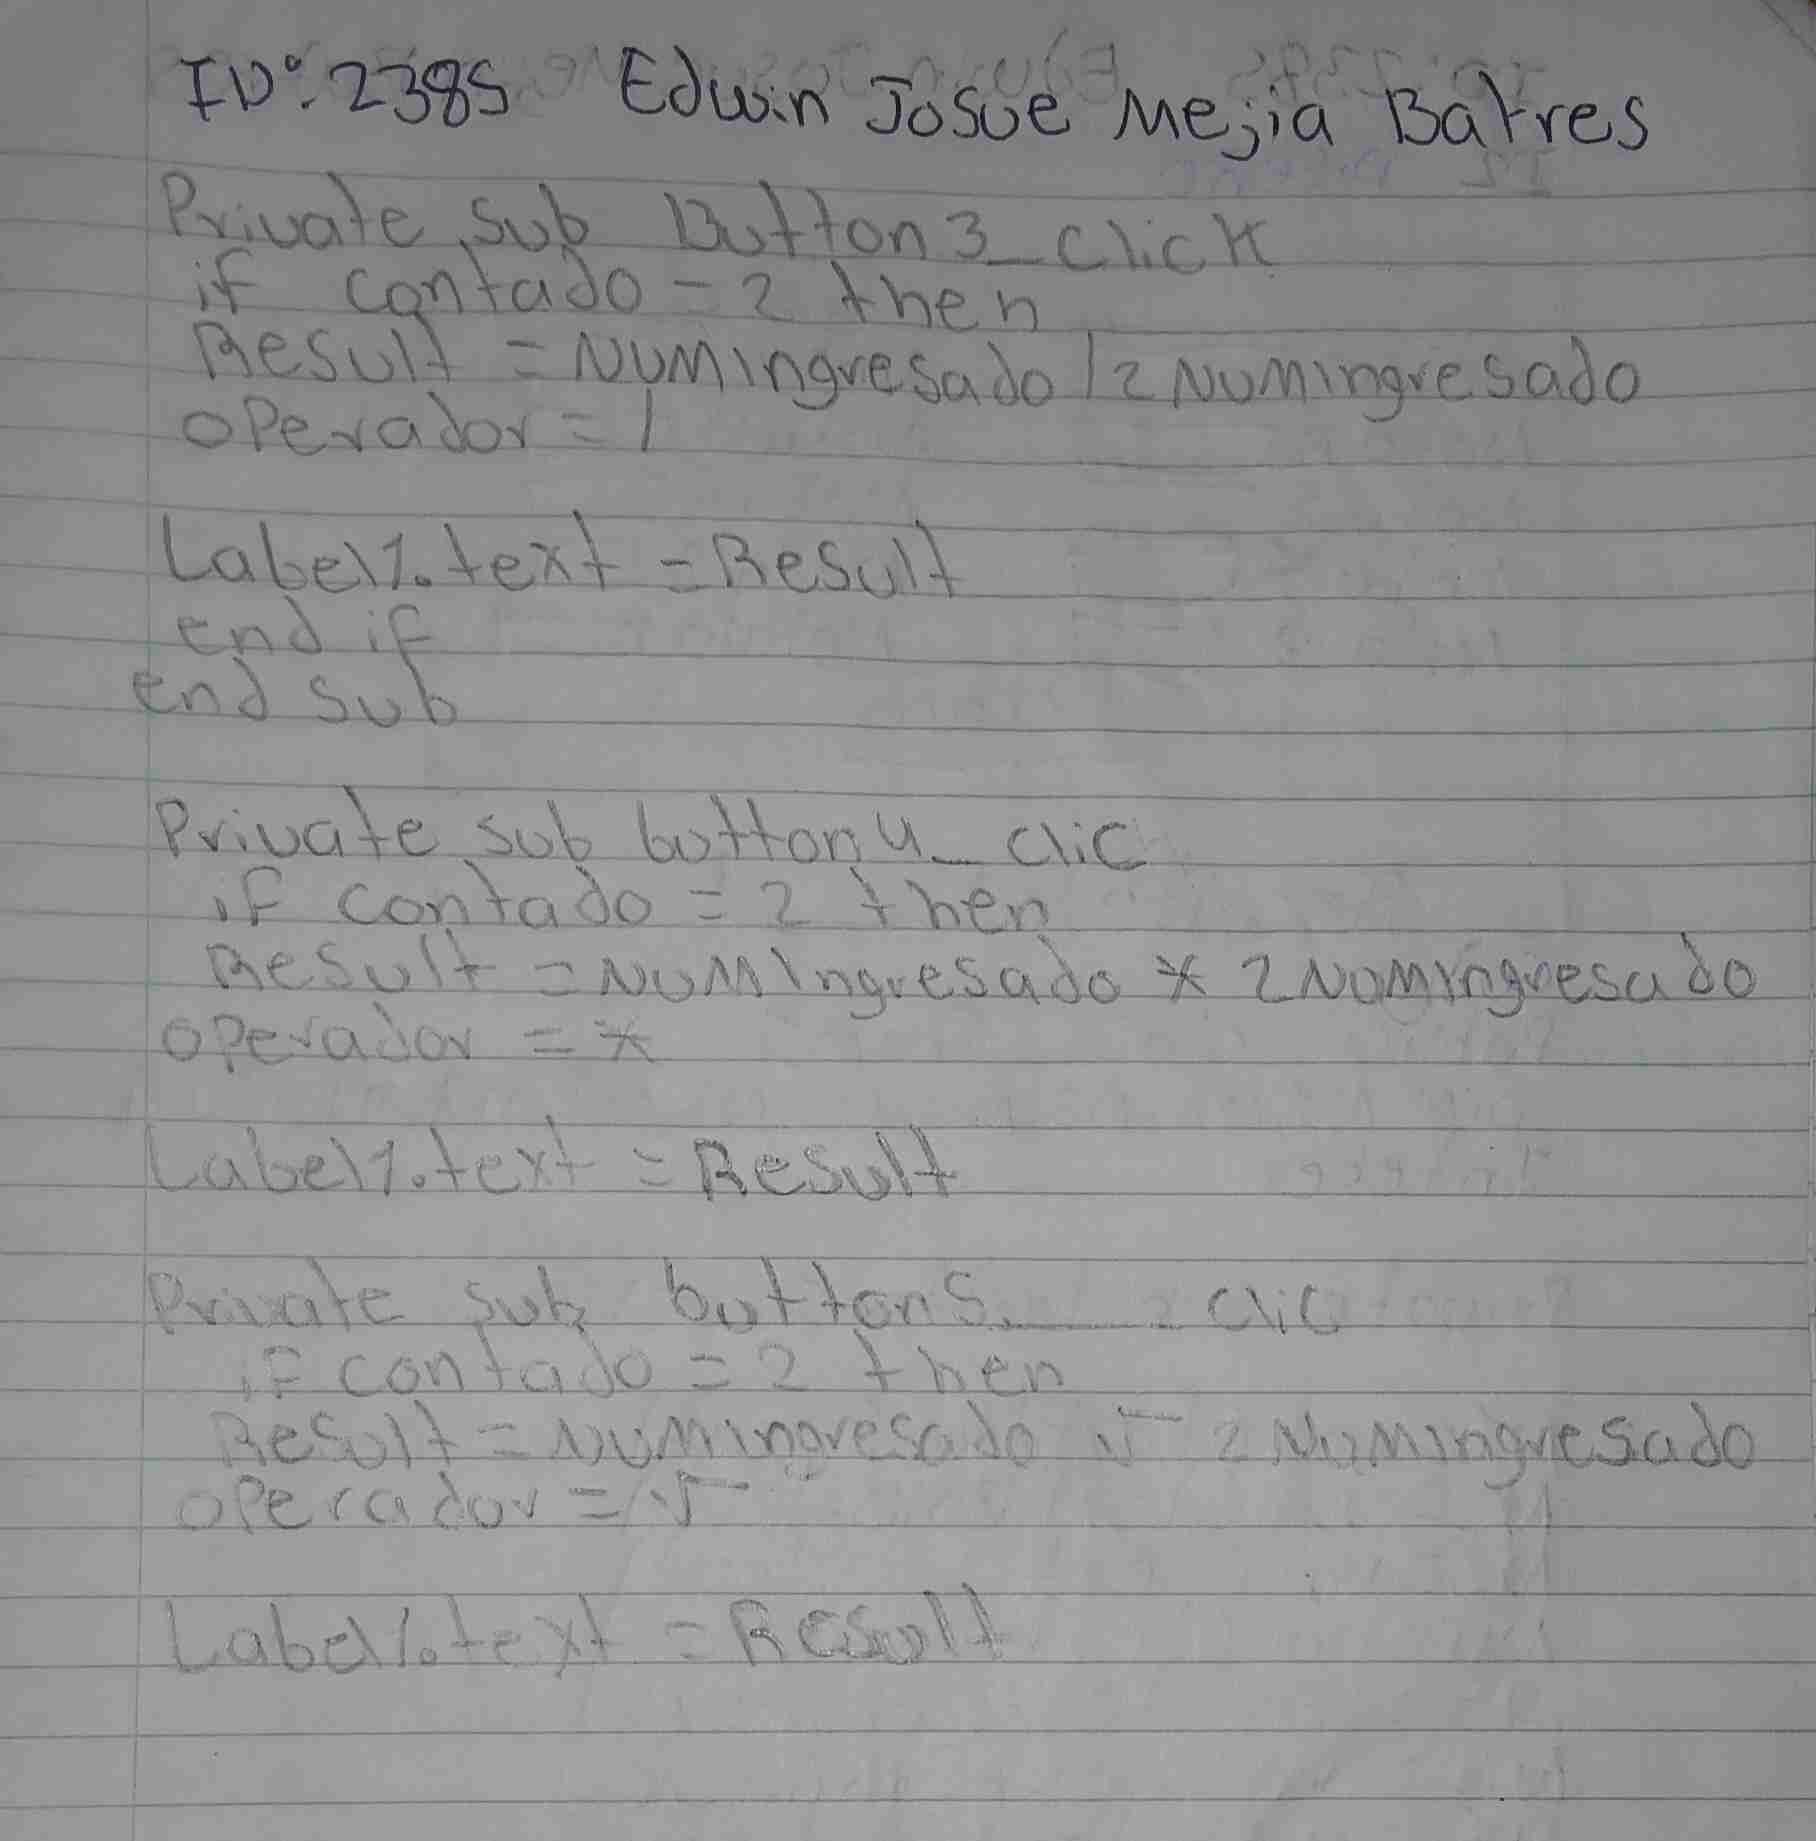 ID: 2385 Edwin Josue Mejia Batres
Private sub Button3_click
if contado = 2 then
Result = NUMingresado / 2 NUMingresado
operador = /
Label1.text = Result
end if
end sub
Private sub button4_clic
if contado = 2 then
Result = NUMingresado * 2 NUMingresado
operador = *
Label1.text = Result
Private sub button5_ clic
if contado = 2 then
Result = NUMingresado √ 2 NUMingresado
operador = √
Label1.text = Result